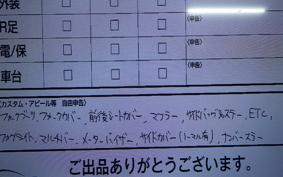 外装 □ □ □
R足 □ □ □ (申告)
電/保 □ □ □ (申告)
車台 □ □ □ (申告)
(カスタム・アピール等 自由申告)
フォークブーツ、フォークカバー、前後シートカバー、マフラー、サイドバッグ&ステー、ETC、
フォグライト、マルチバー、メーターバイザー、サイドカバー(ノーマル有)、ナンバーステー
ご出品ありがとうございます。